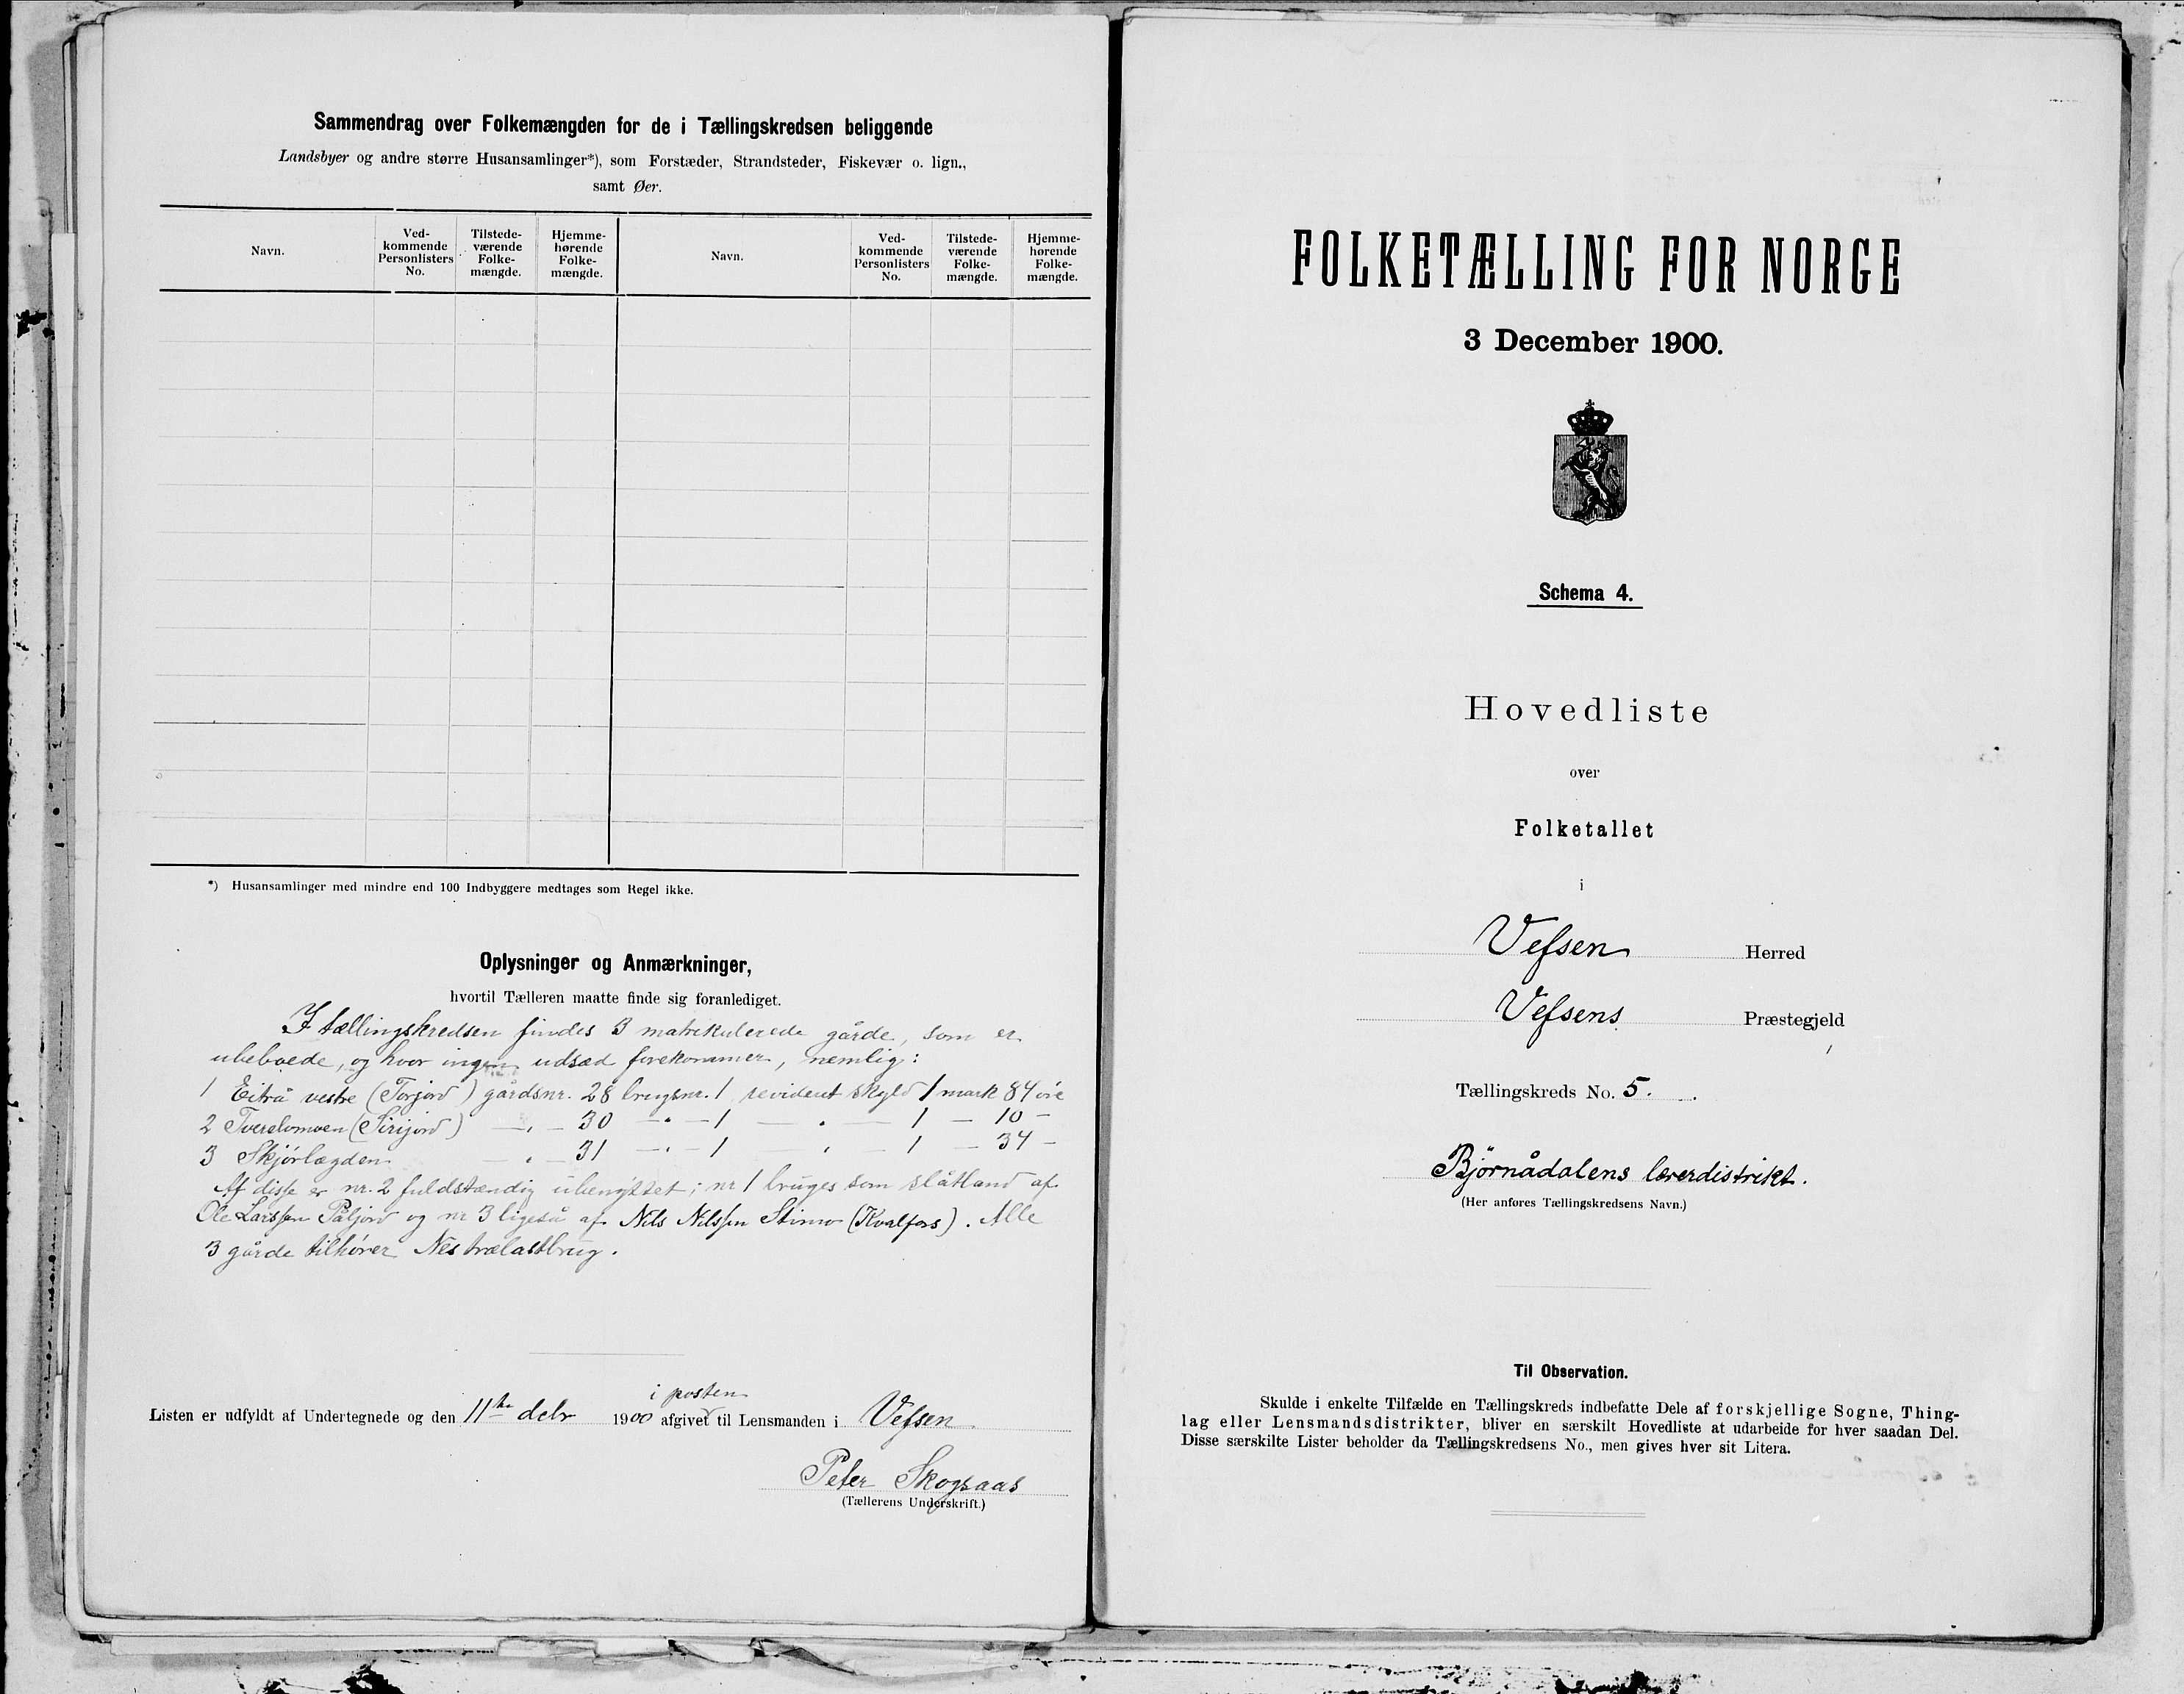 Sammendrag over Folkemængden for de i Tællingskredsen beliggende
Landsbyer og andre større Husansamlinger*), som Forstæder, Strandsteder, Fiskevær o. lign.,
samt Øer.
Navn.
Ved-
kommende
Personlisters
No.
Tilstede-
værende
Folke-
mængde.
Hjemme-
hørende
Folke-
mængde.
Navn.
Ved-
kommende
Personlisters
No.
Tilstede-
værende
Folke-
mængde.
Hjemme-
hørende
Folke-
mængde.
*) Husansamlinger med mindre end 100 Indbyggere medtages som Regel ikke.
Oplysninger og Anmærkninger,
hvortil Tælleren maatte finde sig foranlediget.
I tællingskredsen findes 3 matrikulerede gårde, som er
ubeboede, og hvor ingen udsæd forekommer, nemlig:
1 Eiterå vestre (Torjord) gårdsnr. 28 brugsnr. 1 revideret skyld 1 mark 84 øre
2 (Sirijord) — „ — 30 — „ — 1 — „ — 1 — 10 —
3 Skjørlægden — „ — 31 — „ — 1 — „ — 1 — 34 —
Af disse er nr. 2 fuldstændig ubenyttet; nr 1 bruges som slåtland af
Ole Larssen Påljord og nr 3 ligeså af Nils Nilssen (Kvalfors). Alle
3 gårde tilhører Nes trælastbrug.
i posten
Listen er udfyldt af Undertegnede og den 11te debr 1900 afgivet til Lensmanden i Vefsen
Peter Skogsaas
(Tællerens Underskrift.)
FOLKETÆLLING FOR NORGE
3 December 1900.
Schema 4.
Hovedliste
over
Folketallet
i
Vefsen Herred
Vefsens Præstegjeld
Tællingskreds No. 5.
Bjørnådalens lærerdistrikt.
(Her anføres Tællingskredsens Navn.)
Til Observation.
Skulde i enkelte Tilfælde en Tællingskreds indbefatte Dele af forskjellige Sogne, Thing-
lag eller Lensmandsdistrikter, bliver en særskilt Hovedliste at udarbeide for hver saadan Del.
Disse særskilte Lister beholder da Tællingskredsens No., men gives hver sit Litera.